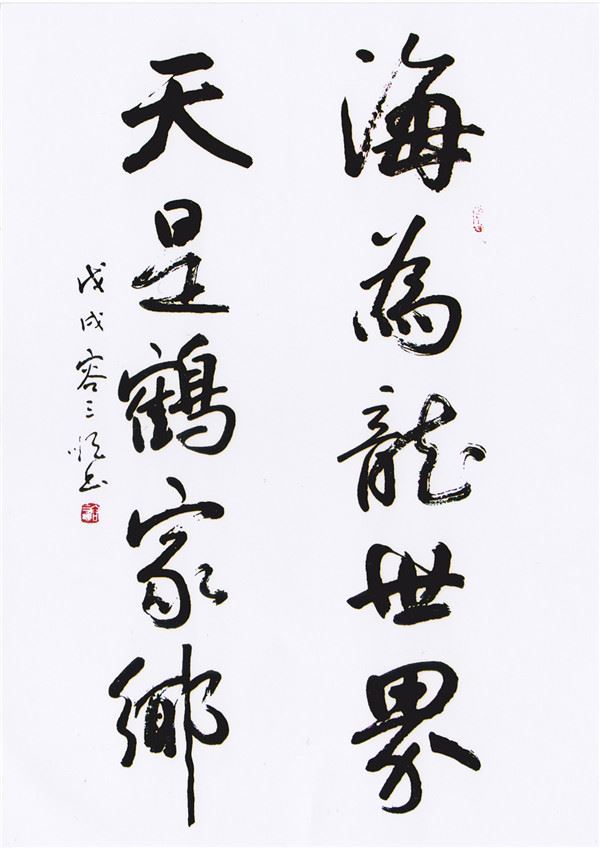 海為龍世界
天是鶴家鄉
戊戌容三順書